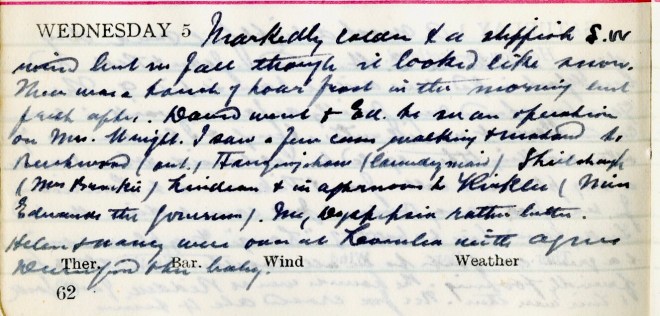 WEDNESDAY 5 Markedly colder & a stiffish S.W
wind but no fall though it looked like snow.
There was a touch of hoar frost in the morning but
fresh after. David went to Ed. to see an operation
on Mrs. Wright. I saw a few cases walking & motored to
(out) Hangingshaw (laundrymaid)
(Mrs ) Lindean & in afternoon to (Miss
Edwards the governess). My Dyspepsia rather better.
Helen & Nancy were over at with Agnes
& her baby.
Ther. Bar. Wind Weather
62